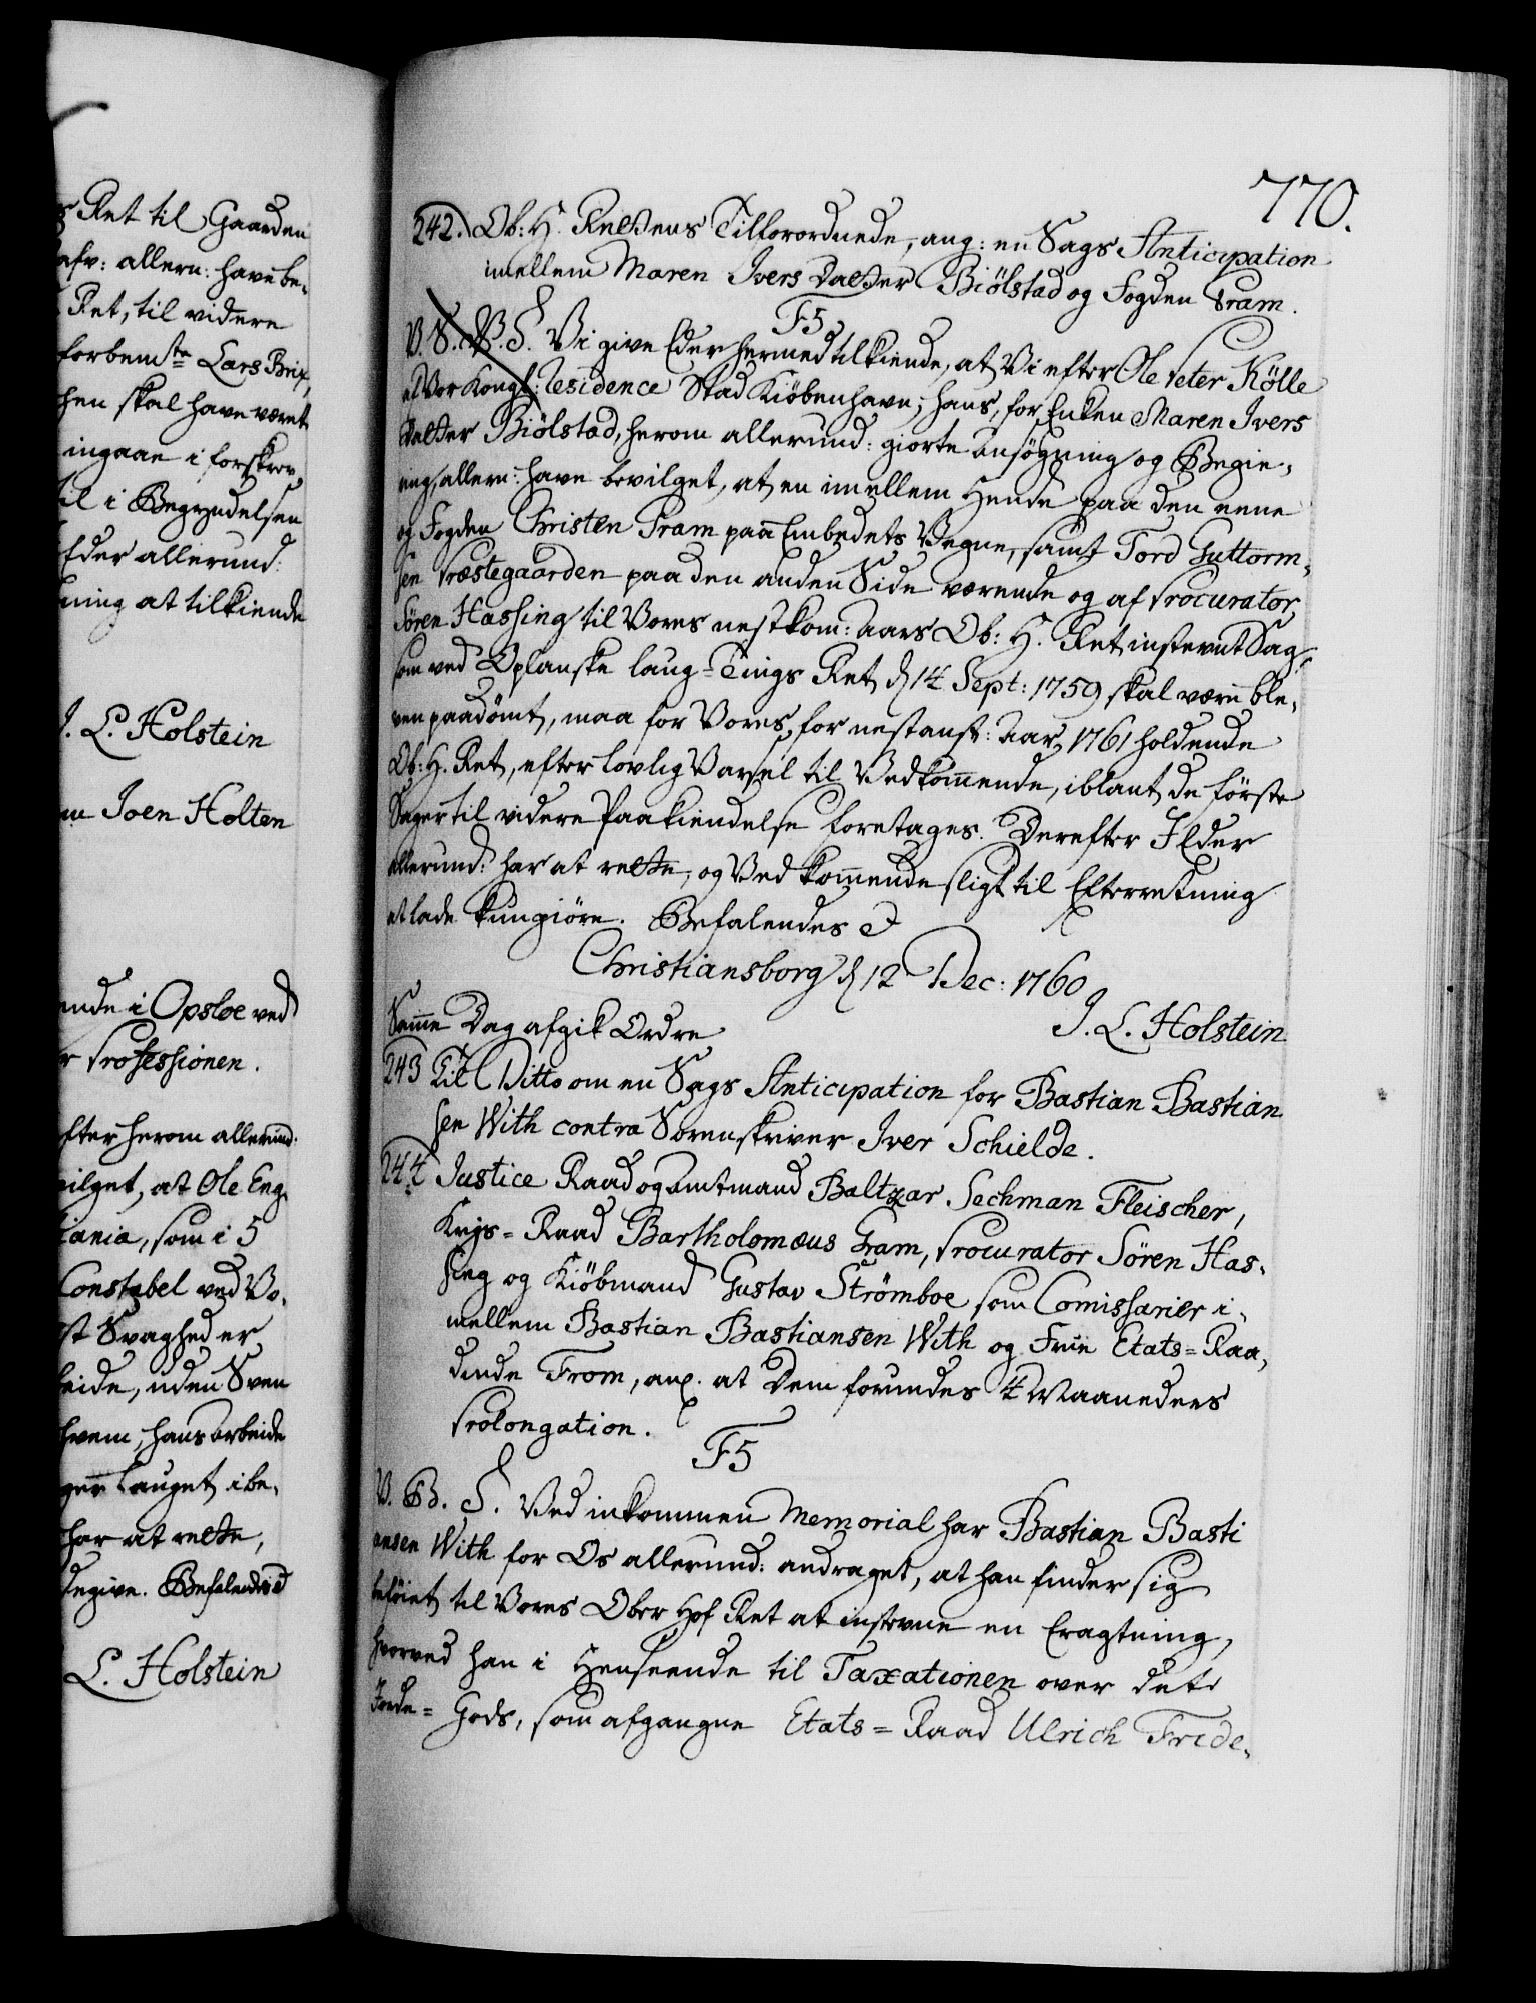 s Ret til Gaarden
afv: allern: have be-
Ret, til videre
forbemte Lars Brix,
hen skal have været
ingaae i forskrev
til i Begyndelsen
Eder allerund:
ning at tilkiende
J. L. Holstein
Joen Holten
ende i Opsloe ved
r Professionen.
efter herom allerund:
vilget, at Ole Eng-
tiania, som i 5
Constabel ved Vo-
st Svaghed er
beide, uden Sven
hvem, hans arbeide
ger Lauget ibe-
har at rette,
degive. Befalendes
L. Holstein
770.
242. Ob: H. Rettens Tilforordnede, ang: en Sags Anticipation
imellem Maren Ivers Datter Biölstad og Fogden Pram.
F5
V. S. V. B. S. Vi give Eder hermed tilkiende, at Vi efter Ole Peter Kölle
af Vor Kongl: Residence Stad Kiöbenhavn, hans, for Enken Maren Ivers
Datter Biölstad, herom allerund: giorte Ansögning og Begie-
ring, allern: have bevilget, at en imellem Hende paa den eene
og Fogden Christen Pram paa Embedets Vegne, samt Tord Guttorm-
sen Præstegaarden paa den anden Side værende og af Procurator
Sören Hassing til Vores nestkom: Aars Ob: H. Ret instevnt Sag,
som ved Oplanske Laug-Tings Ret d 14 Sept: 1759 skal være ble-
ven paadömt, maa for Vores, for nestanst: Aar, 1761 holdende
Ob: H. Ret, efter lovlig Varsel til Vedkommende, iblant de förste
Sager til videre Paakiendelse foretages. Derefter I Eder
allerund: har at rette, og Vedkommende sligt til Efterretning
at lade kungiöre. Befalendes
Christiansborg d 12 Dec: 1760
J. L. Holstein
Samme Dag afgik Ordre
243 Til Ditto om en Sags Anticipation for Bastian Bastian
sen With contra Sorenskriver Iver Schielde.
244 Justice Raad og Amtmand Baltzar Sechman Fleischer,
Krigs-Raad Bartholomæus Gram, Procurator Sören Has-
sing og Kiöbmand Gustav Strömboe som Comissarier i-
mellem Bastian Bastiansen With og Frue Etats-Raa-
dinde From, ang. at Dem forundes 4 Maaneders
Prolongation.
F5
V. B. S. Ved inkommen Memorial har Bastian Basti
ansen With for Os allerund: andraget, at han finder sig
beföiet til Vores Ober Hof Ret at instevne en Eragtning,
hvorved han i Henseende til Taxationen over det
Jorde-Gods, som afgangne Etats-Raad Ulrich Fride-